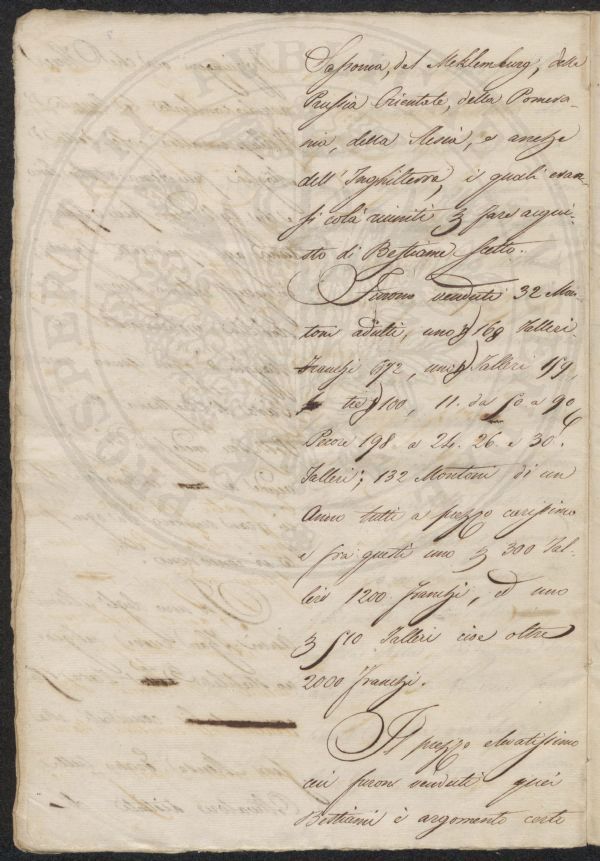 Sassonia, del Meklemburg, della
Prussia Orientale, della Pomera-
nia, della Slesia, e anche
dell'Inghilterra, i quali eran-
si colà riuniti p fare acqui-
sto di Bestiame scelto.
Furono venduti 32 Mon-
toni adulti, uno p 168 Talleri
Franchi 672, uno p Talleri 159,
tre p 100, 11. da 50 a 90
Pecore 198. a 24. 26. e 30.
Talleri; 132 Montoni di un
Anno tutti a prezzo carissimo
e fra questi uno p 300 Tal-
leri 1200 Franchi, ed uno
p 510 Talleri cioè oltre
2000 Franchi.
Il prezzo elevatissimo
cui furono venduti quei
Bestiami è argomento certo